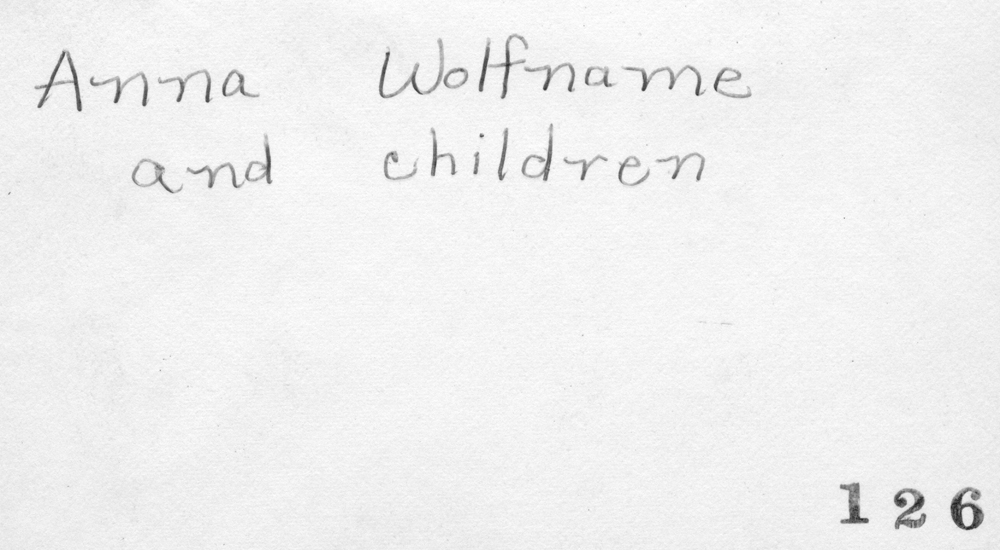 Anna Wolfname
and children
126